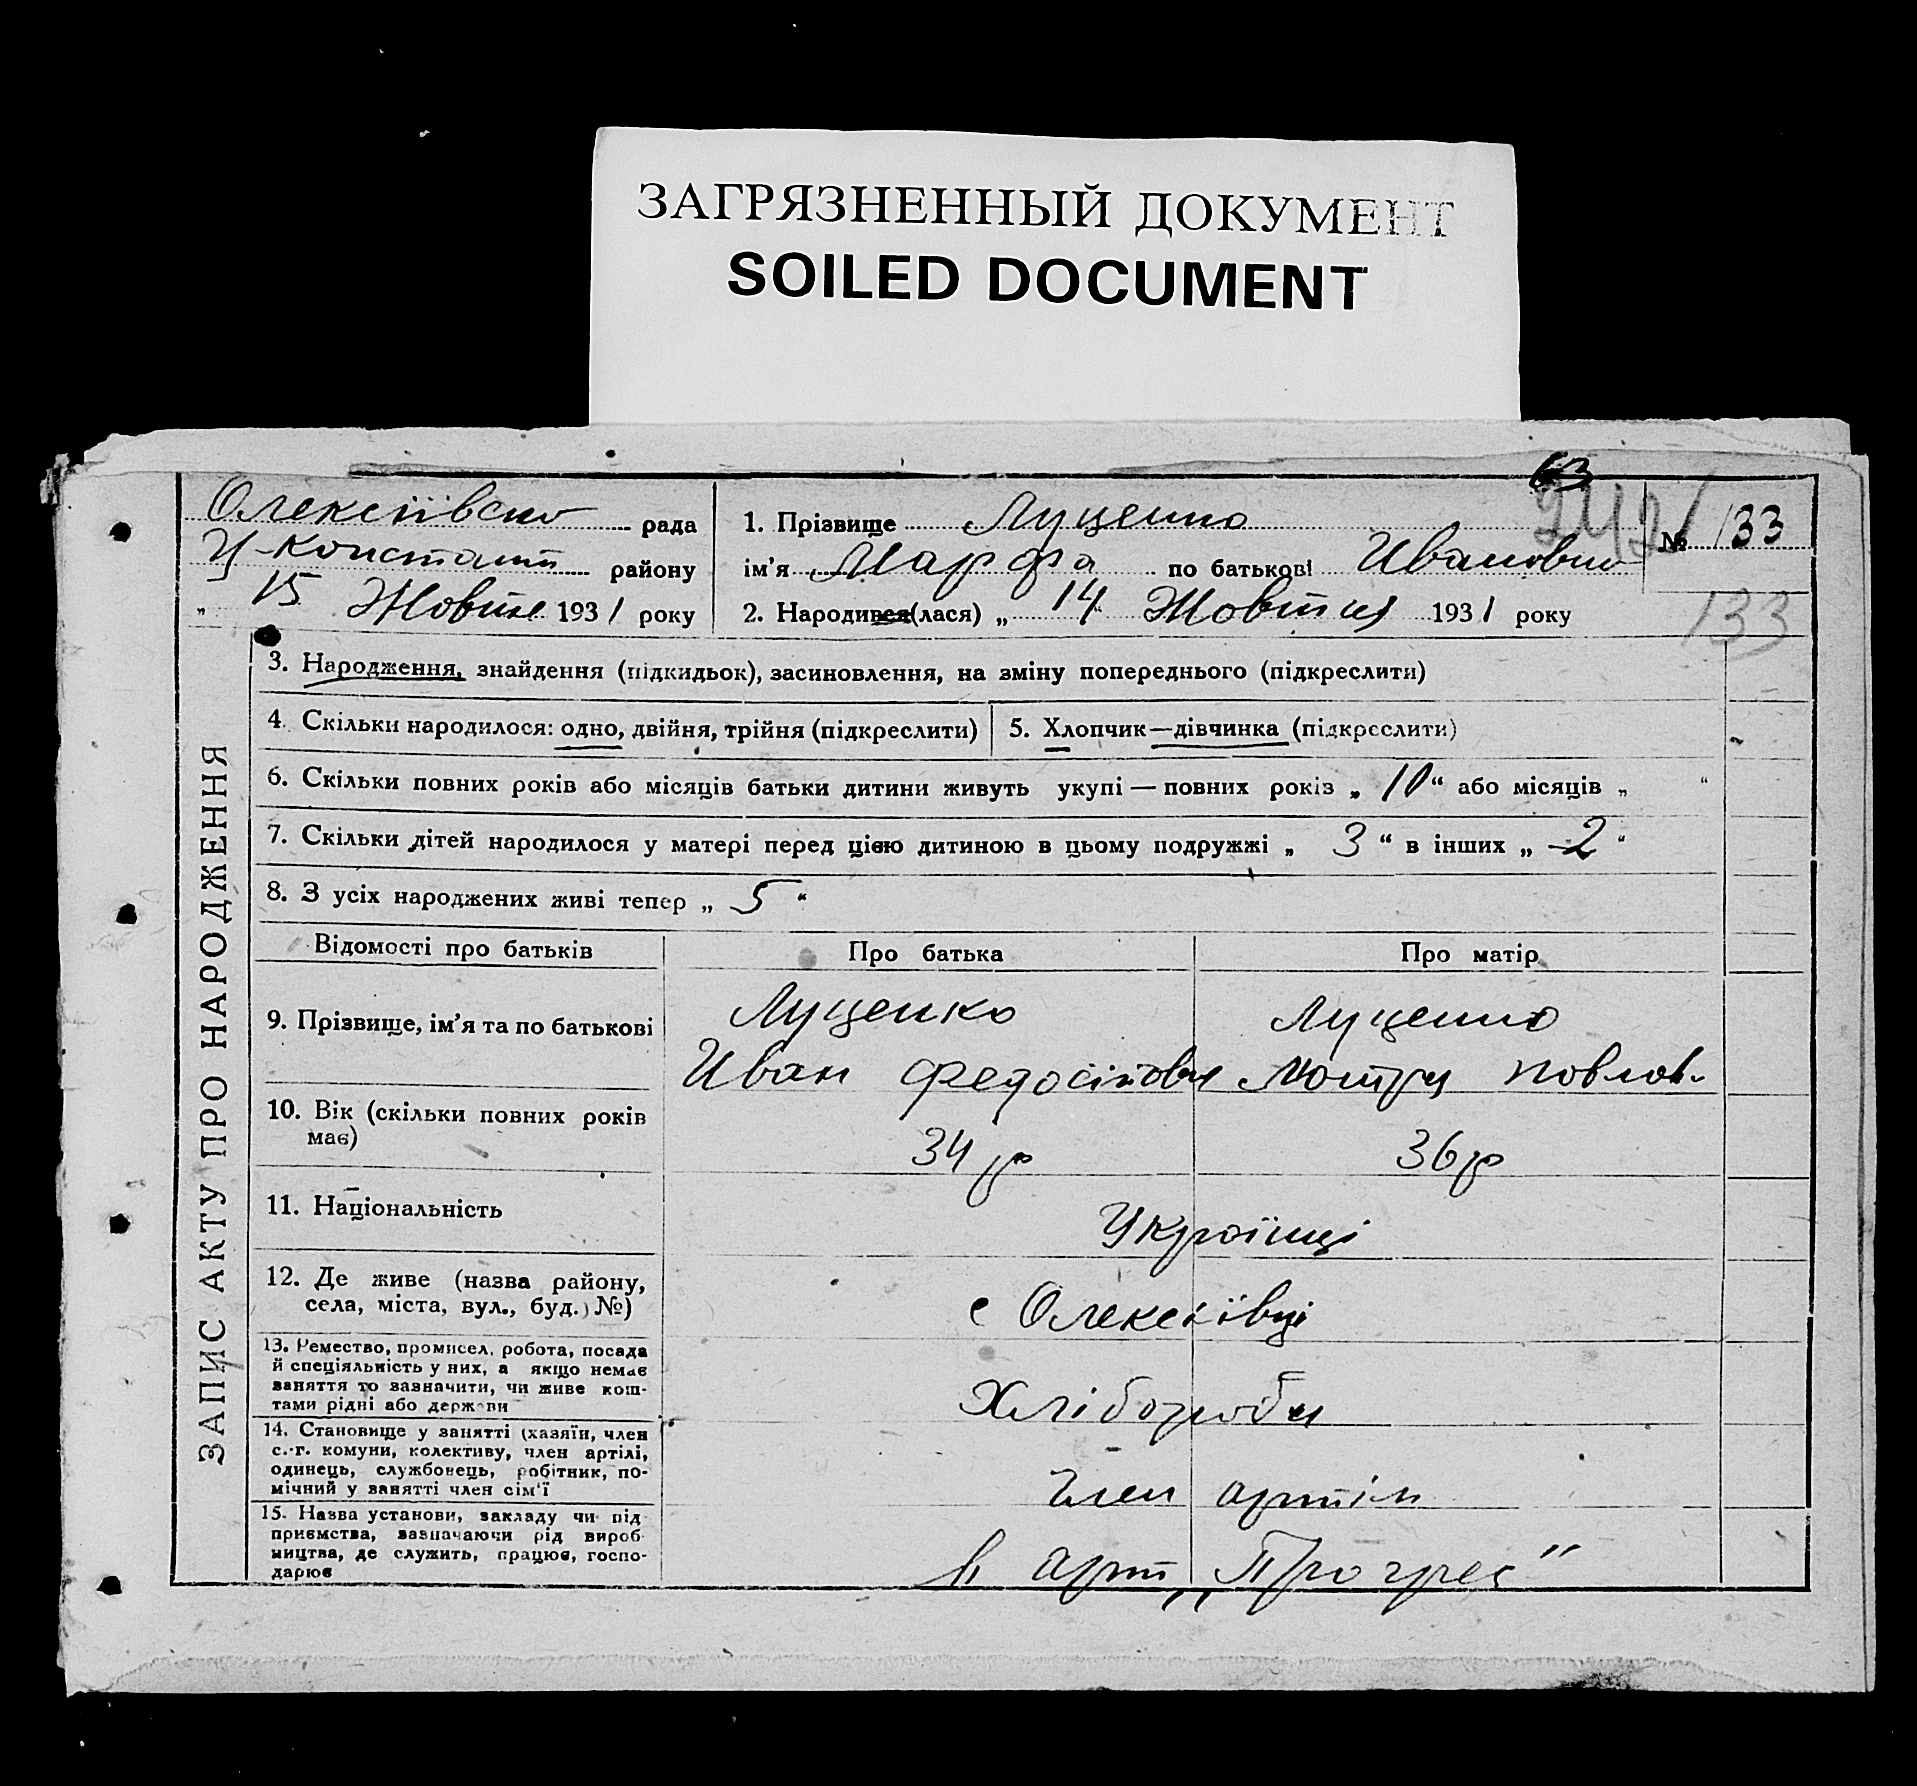 ЗАГРЯЗНЕННЫЙ ДОКУМЕНТ
SOILED DOCUMENT
63
Олексіївсько рада
район у
15 Жовтня 1931 року
1. Прізвище Луценко
ім'я Марфа по батькові Ивановно
2. Народився(лася) „ 14 " Жовтня 1931 року
№ 133
133
ЗАПИС АКТУ ПРО НАРОДЖЕННЯ
3. Народження, знайдення (підкидьок), засиновлення, на зміну попереднього (підкреслити)
4. Скільки народилося: одно, двійня, трійня (підкреслити)
5. Хлопчик—дівчинка (підкреслити)
6. Скільки повних років або місяців батьки дитини живуть укупі — повних років „ 10 “ або місяців „ “
7. Скільки дітей народилося у матері перед цією дитиною в цьому подружжі „ 3 “ в інших „ 2 “
8. З усіх народжених живі тепер „ 5 “
Відомості про батьків
Про батька
Про матір
9. Прізвище, ім'я та по батькові
Луценко
Иван Федосійович
Луценко
Мотря Повлов.
10. Вік (скільки повних років
має)
34 р
36 р
11. Національність
Українці
12. Де живе (назва району,
села, міста, вул., буд. №)
с Олексіївці
13. Ремество, промисел, робота, посада
й спеціяльність у них, а якщо немає
заняття то зазначити, чи живе кош-
тами рідні або держави
Хлібороби
14. Становище у занятті (хазяїн, член
с.-г. комуни, колективу, член артілі,
одинець, службовець, робітник, по-
мічний у занятті член сім'ї
Член артіли
15. Назва установи, закладу чи під
приємства, зазначаючи рід вироб
ництва, де служить, працює, госпо-
дарює
в арт „Прогрес"